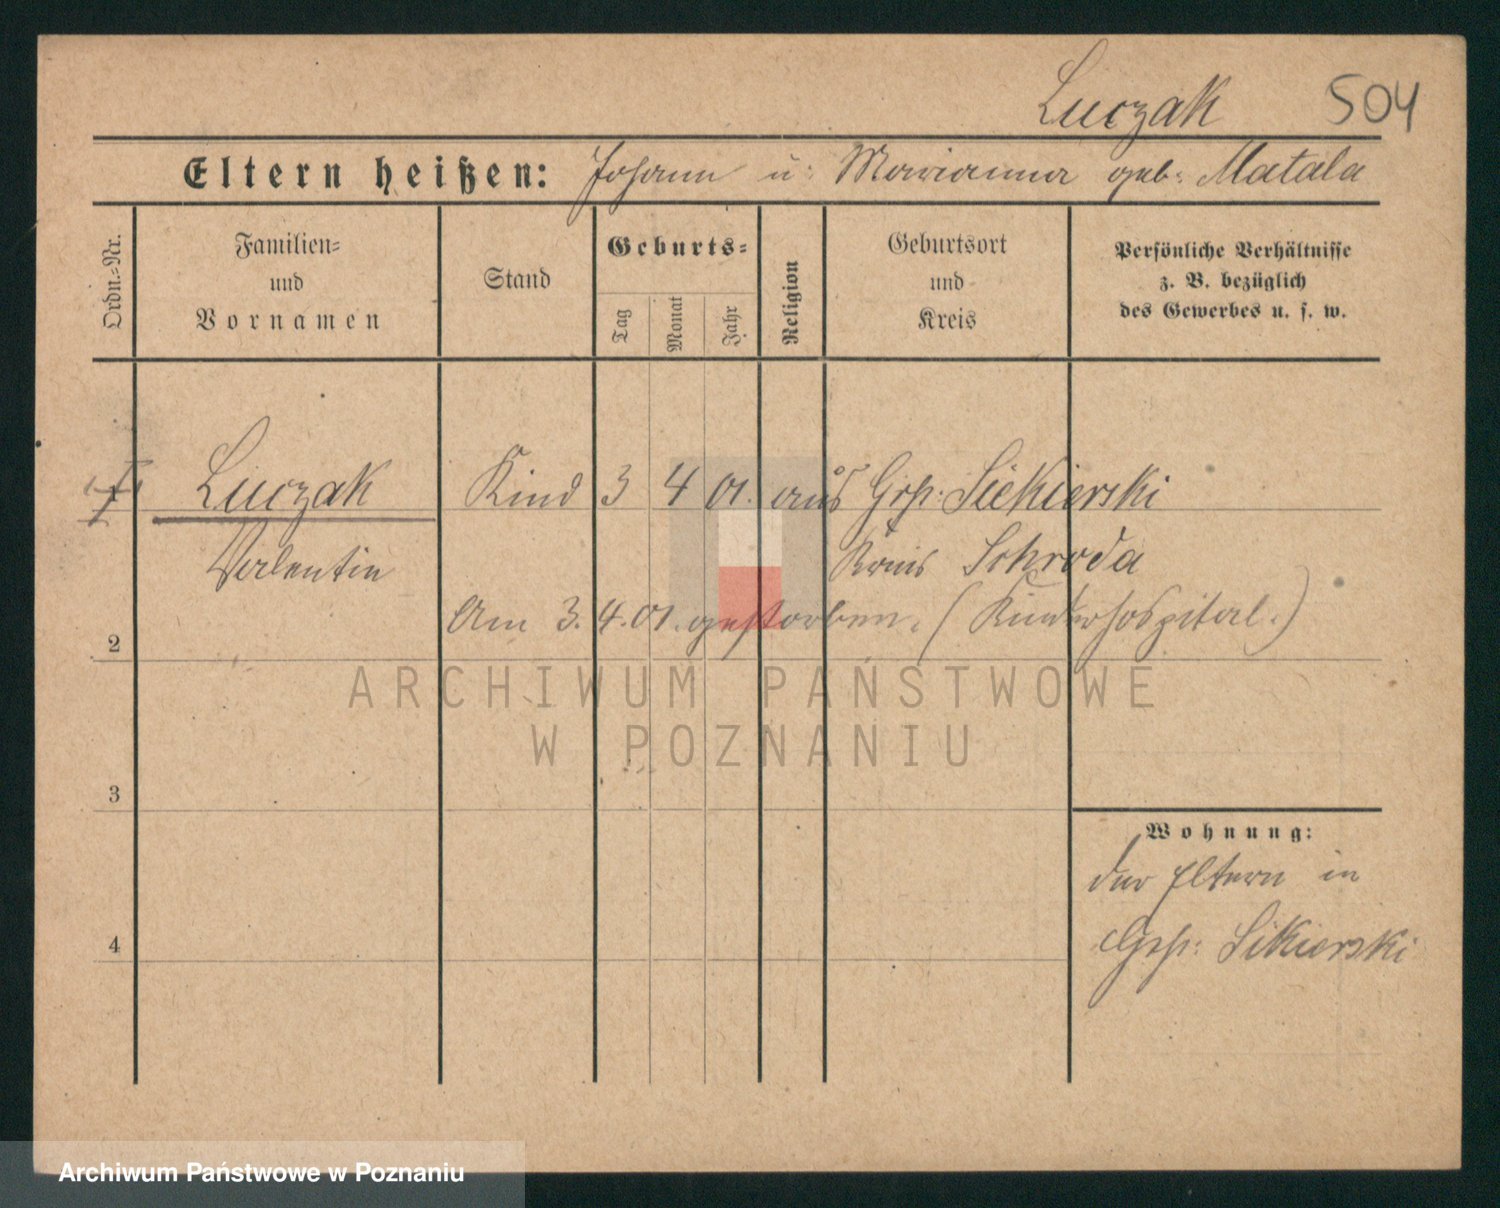 Luczak 504
Eltern heißen: Johann u: Marianna geb: Matala
Ordn.=Nr.
Familien=
und
Vornamen
Stand
Geburts=
Tag
Monat
Jahr
Religion
Geburtsort
und
Kreis
Persönliche Verhältnisse
z. B. bezüglich
des Gewerbes u. s. w.
Luczak Kind 3 4 01. aus Grp: Siekierski
Valentin Kreis Schroda
Am 3. 4. 01. gestorben. (Kinderhospital.)
2
ARCHIWUM PAŃSTWOWE
W POZNANIU
3
Wohnung:
der Eltern in
Siekierski
4
Archiwum Państwowe w Poznaniu